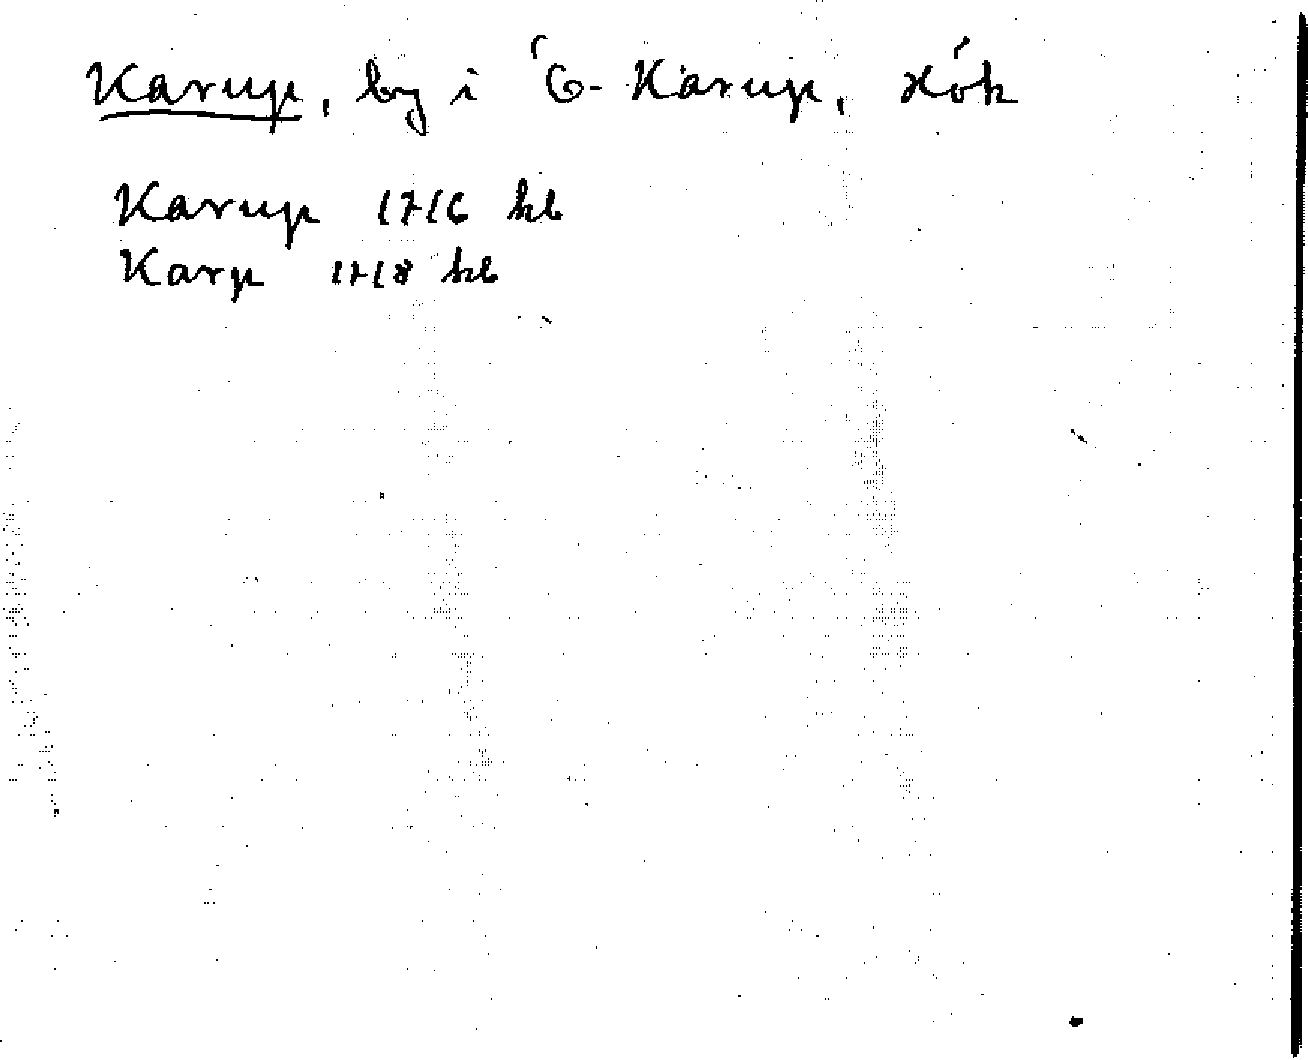 Karup, by i Ö-Karup, Hök
Karup 1716 kb
Karp 1718 kb